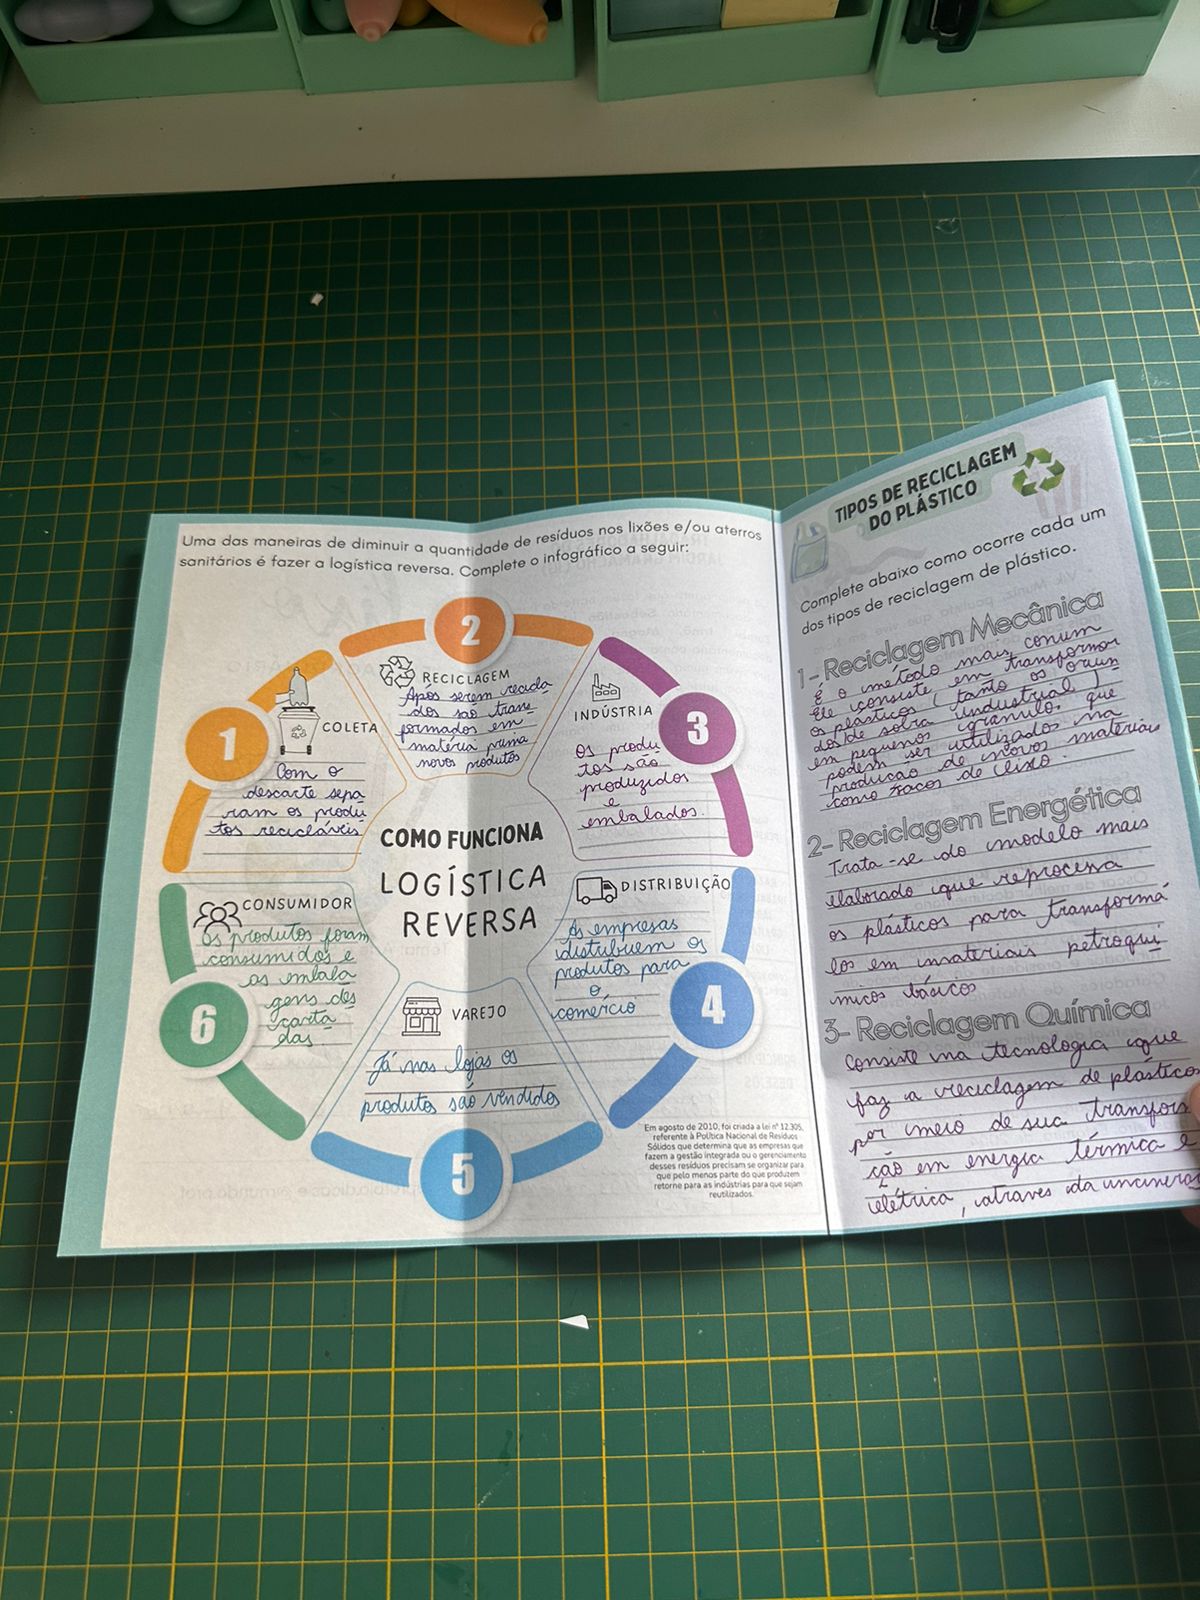 Uma das maneiras de diminuir a quantidade de resíduos nos lixões e/ou aterros
sanitários é fazer a logística reversa. Complete o infográfico a seguir:
1
COLETA
Com o
descarte sepa
ram os produ
tos recicláveis
2
RECICLAGEM
Após serem recicla
dos são trans
formados em
matéria prima
novos produtos
3
INDÚSTRIA
os produ
tos são
produzidos
e
embalados.
COMO FUNCIONA
LOGÍSTICA
REVERSA
DISTRIBUIÇÃO
As empresas
distribuem os
produtos para
o
comércio
4
VAREJO
Já nas lojas os
produtos são vendidos
5
CONSUMIDOR
Os produtos foram
consumidos e
as embala
gens des
carta
das.
6
Em agosto de 2010, foi criada a lei nº 12.305,
referente à Política Nacional de Resíduos
Sólidos que determina que as empresas que
fazem a gestão integrada ou o gerenciamento
desses resíduos precisam se organizar para
que pelo menos parte do que produzem
retorne para as indústrias para que sejam
reutilizados.
TIPOS DE RECICLAGEM
DO PLÁSTICO
Complete abaixo como ocorre cada um
dos tipos de reciclagem de plástico.
1- Reciclagem Mecânica
É o método mais comum
Ele consiste em transformar
os plásticos ( tanto os
dos de sobra industrial )
em pequenos grânulos que
podem ser utilizados na
produção de novos materiais
como sacos de lixo.
2- Reciclagem Energética
Trata-se do modelo mais
elaborado que reprocessa
os plásticos para transformá
los em materiais petroquí
micos básicos
3- Reciclagem Química
Consiste na tecnologia que
faz a reciclagem de plástico
por meio de sua transfor
ção em energia térmica e
elétrica, atraves da incinera